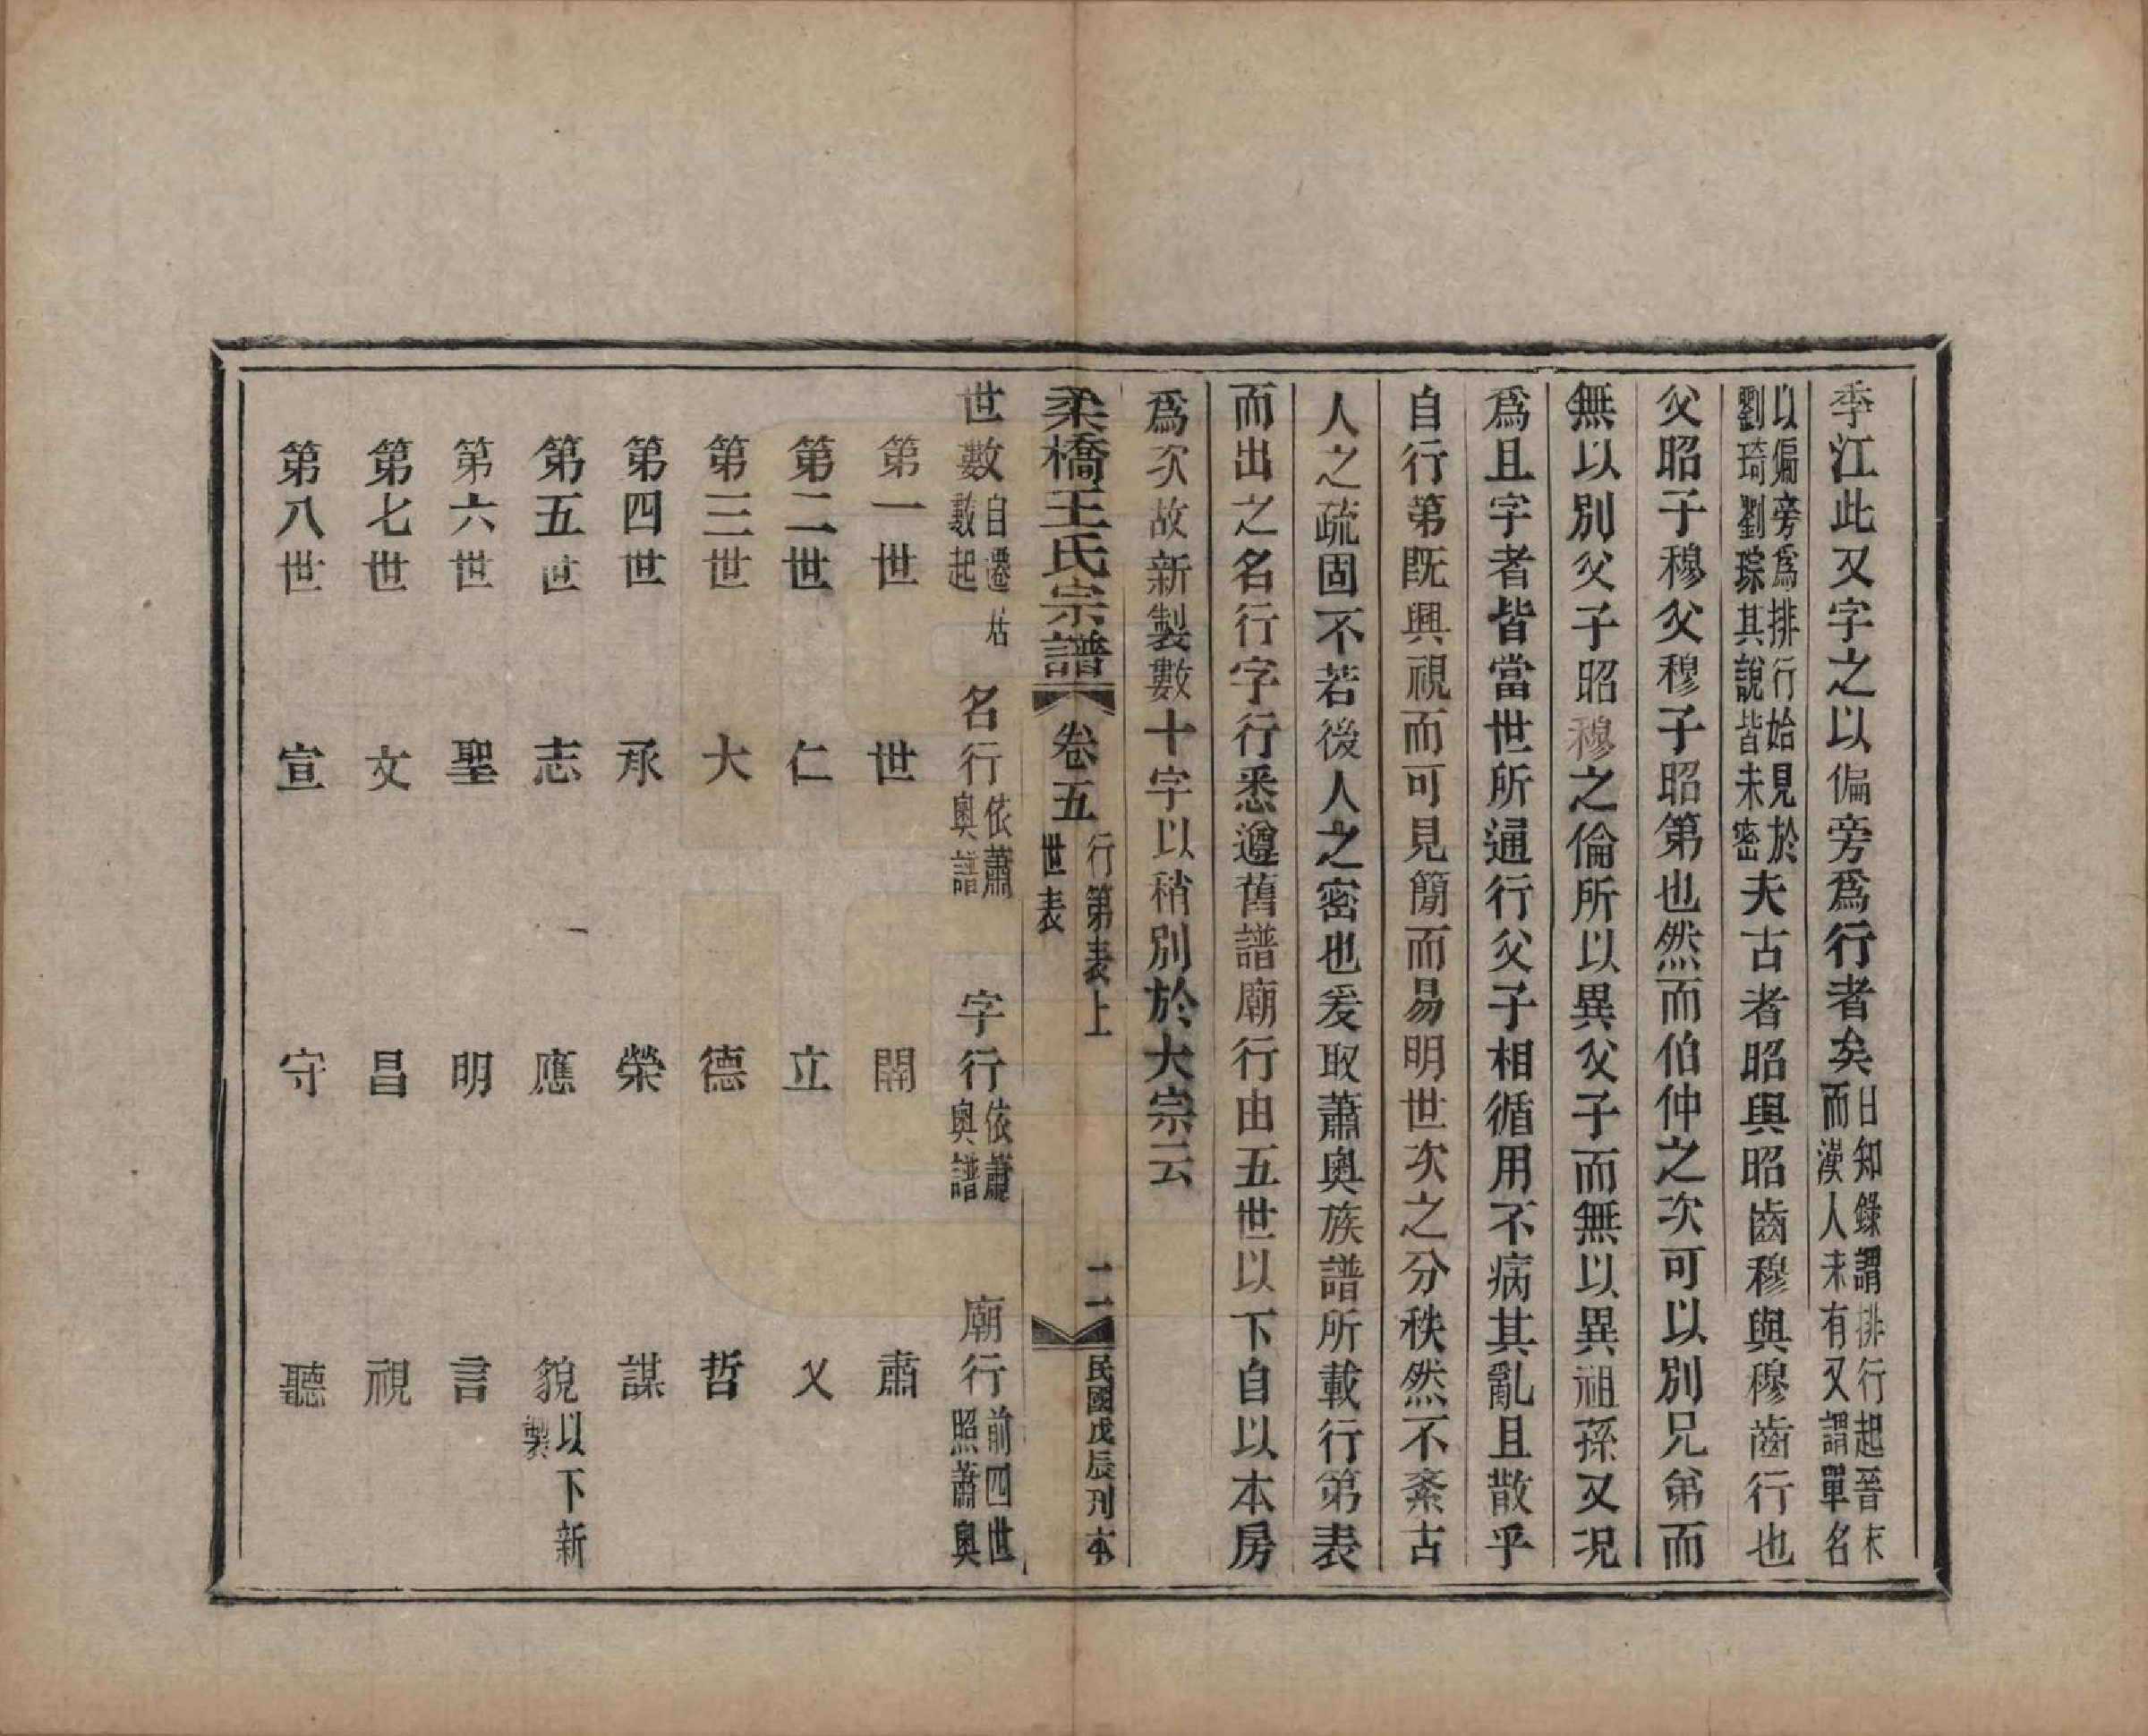 季江此又字之以偏旁爲行者矣日知錄謂排行起晉末
而漢人未有又謂單名
以偏旁爲排行始見於
劉琦劉琮其說皆未密夫古者昭與昭齒穆與穆齒行也
父昭子穆父穆子昭第也然而伯仲之次可以別兄弟而
無以別父子昭穆之倫所以異父子而無以異祖孫又況
爲且字者皆當世所通行父子相循用不病其亂且散乎
自行第既興視而可見簡而易明世次之分秩然不紊古
人之疏固不若後人之密也爰取蕭奧族譜所載行第表
而出之名行字行悉遵舊譜廟行由五世以下自以本房
爲次故新製數十字以稍別於大宗云
柔橋王氏宗譜 卷五 行第表上
世表
二 民國戊辰刊本
世數自遷
數起 名行依蕭
奧譜 字行依蕭
奧譜 廟行前四世
照蕭奧
第一世 世 開 肅
第二世 仁 立 乂
第三世 大 德 哲
第四世 承 榮 謀
第五世 志 應 貌以下新
製
第六世 聖 明 言
第七世 文 昌 視
第八世 宣 守 聽